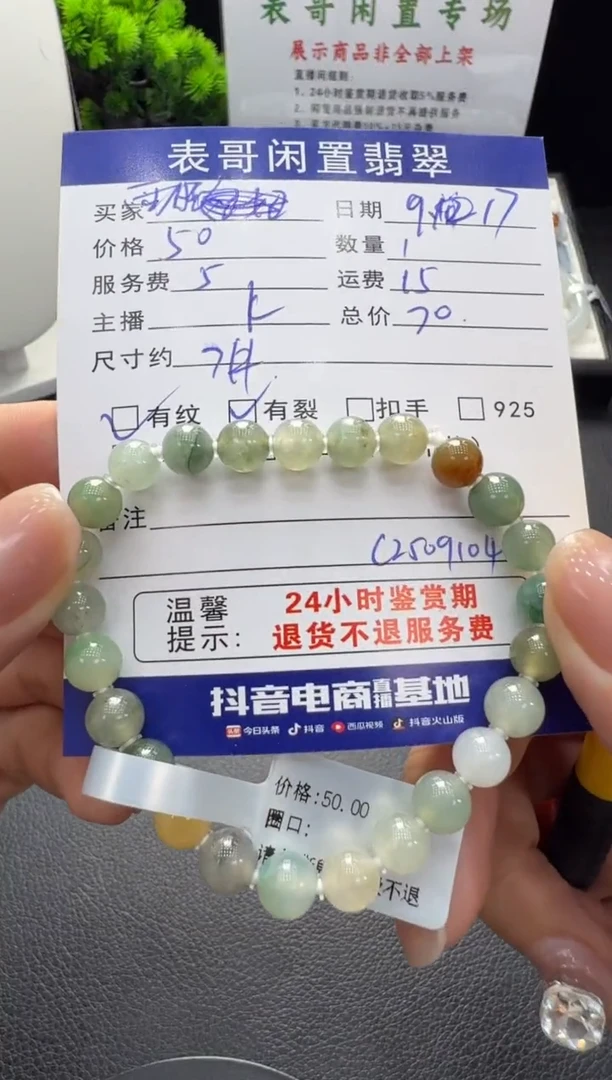 表哥闲置专场
展示商品非全部上架
直播间规则:
1、24小时鉴赏期退货收取5%服务费
表哥闲置翡翠
买家 日期 9 17
价格 50 数量 1
服务费 5 运费 15
主播 总价 70.
尺寸约 7
有纹 有裂 扣手 925
备注
C2509104
温馨提示:
24小时鉴赏期
退货不退服务费
抖音电商直播基地
今日头条 抖音 西瓜视频 抖音火山版
价格:50.00
圈口:
请
不退